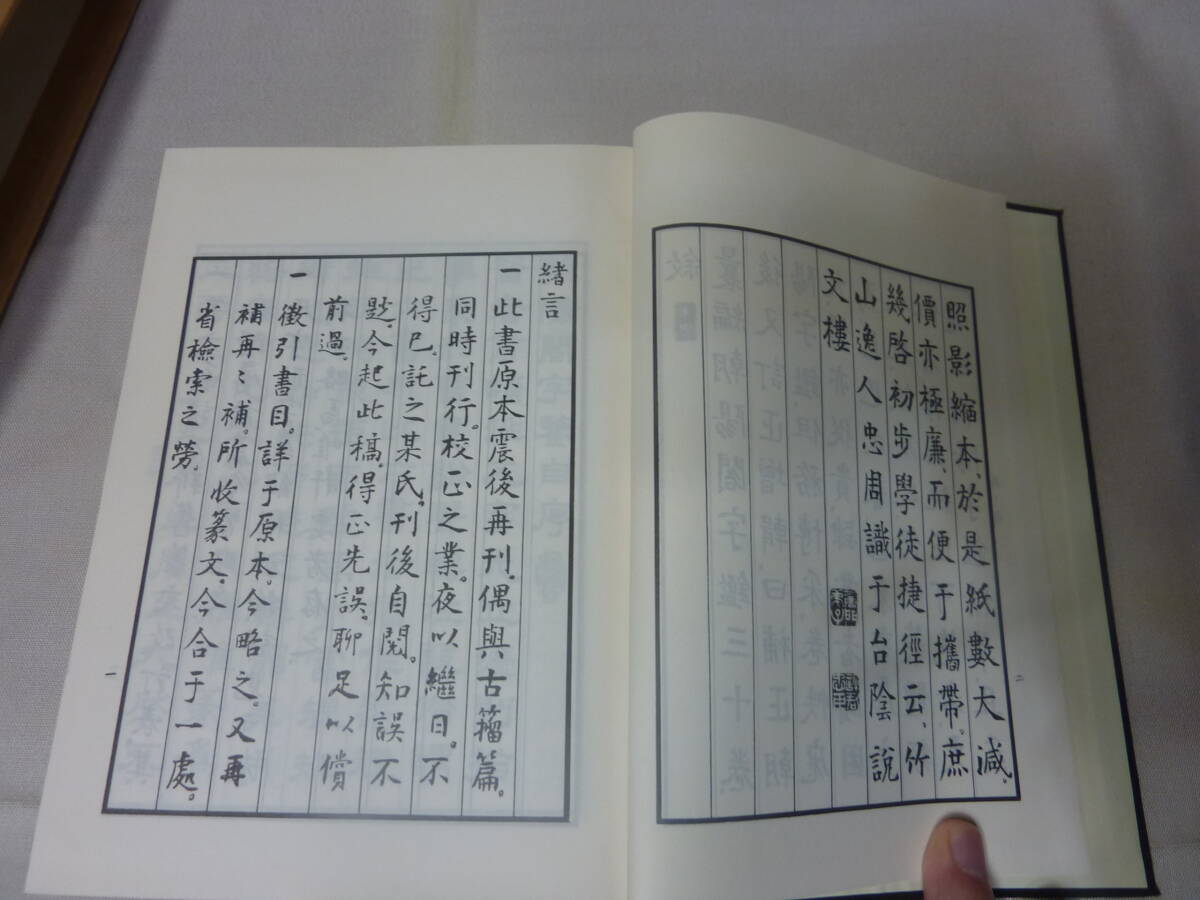 照影縮本、於是紙數大減、
價亦極廉、而便于攜帶、庶
幾啓初步學徒捷徑云、竹
山逸人忠周識于台陰說
文樓
二
緒言
一 此書原本震後再刊。偶與古籀篇。
同時刊行。校正之業。夜以繼日。不
得已。託之某氏。刊後自閱。知誤不
尟。今起此稿。得正先誤。聊足以償
前過。
一 徵引書目。詳于原本。今略之。又再
補再〻補。所收篆文。今合于一處。
省檢索之勞。
一